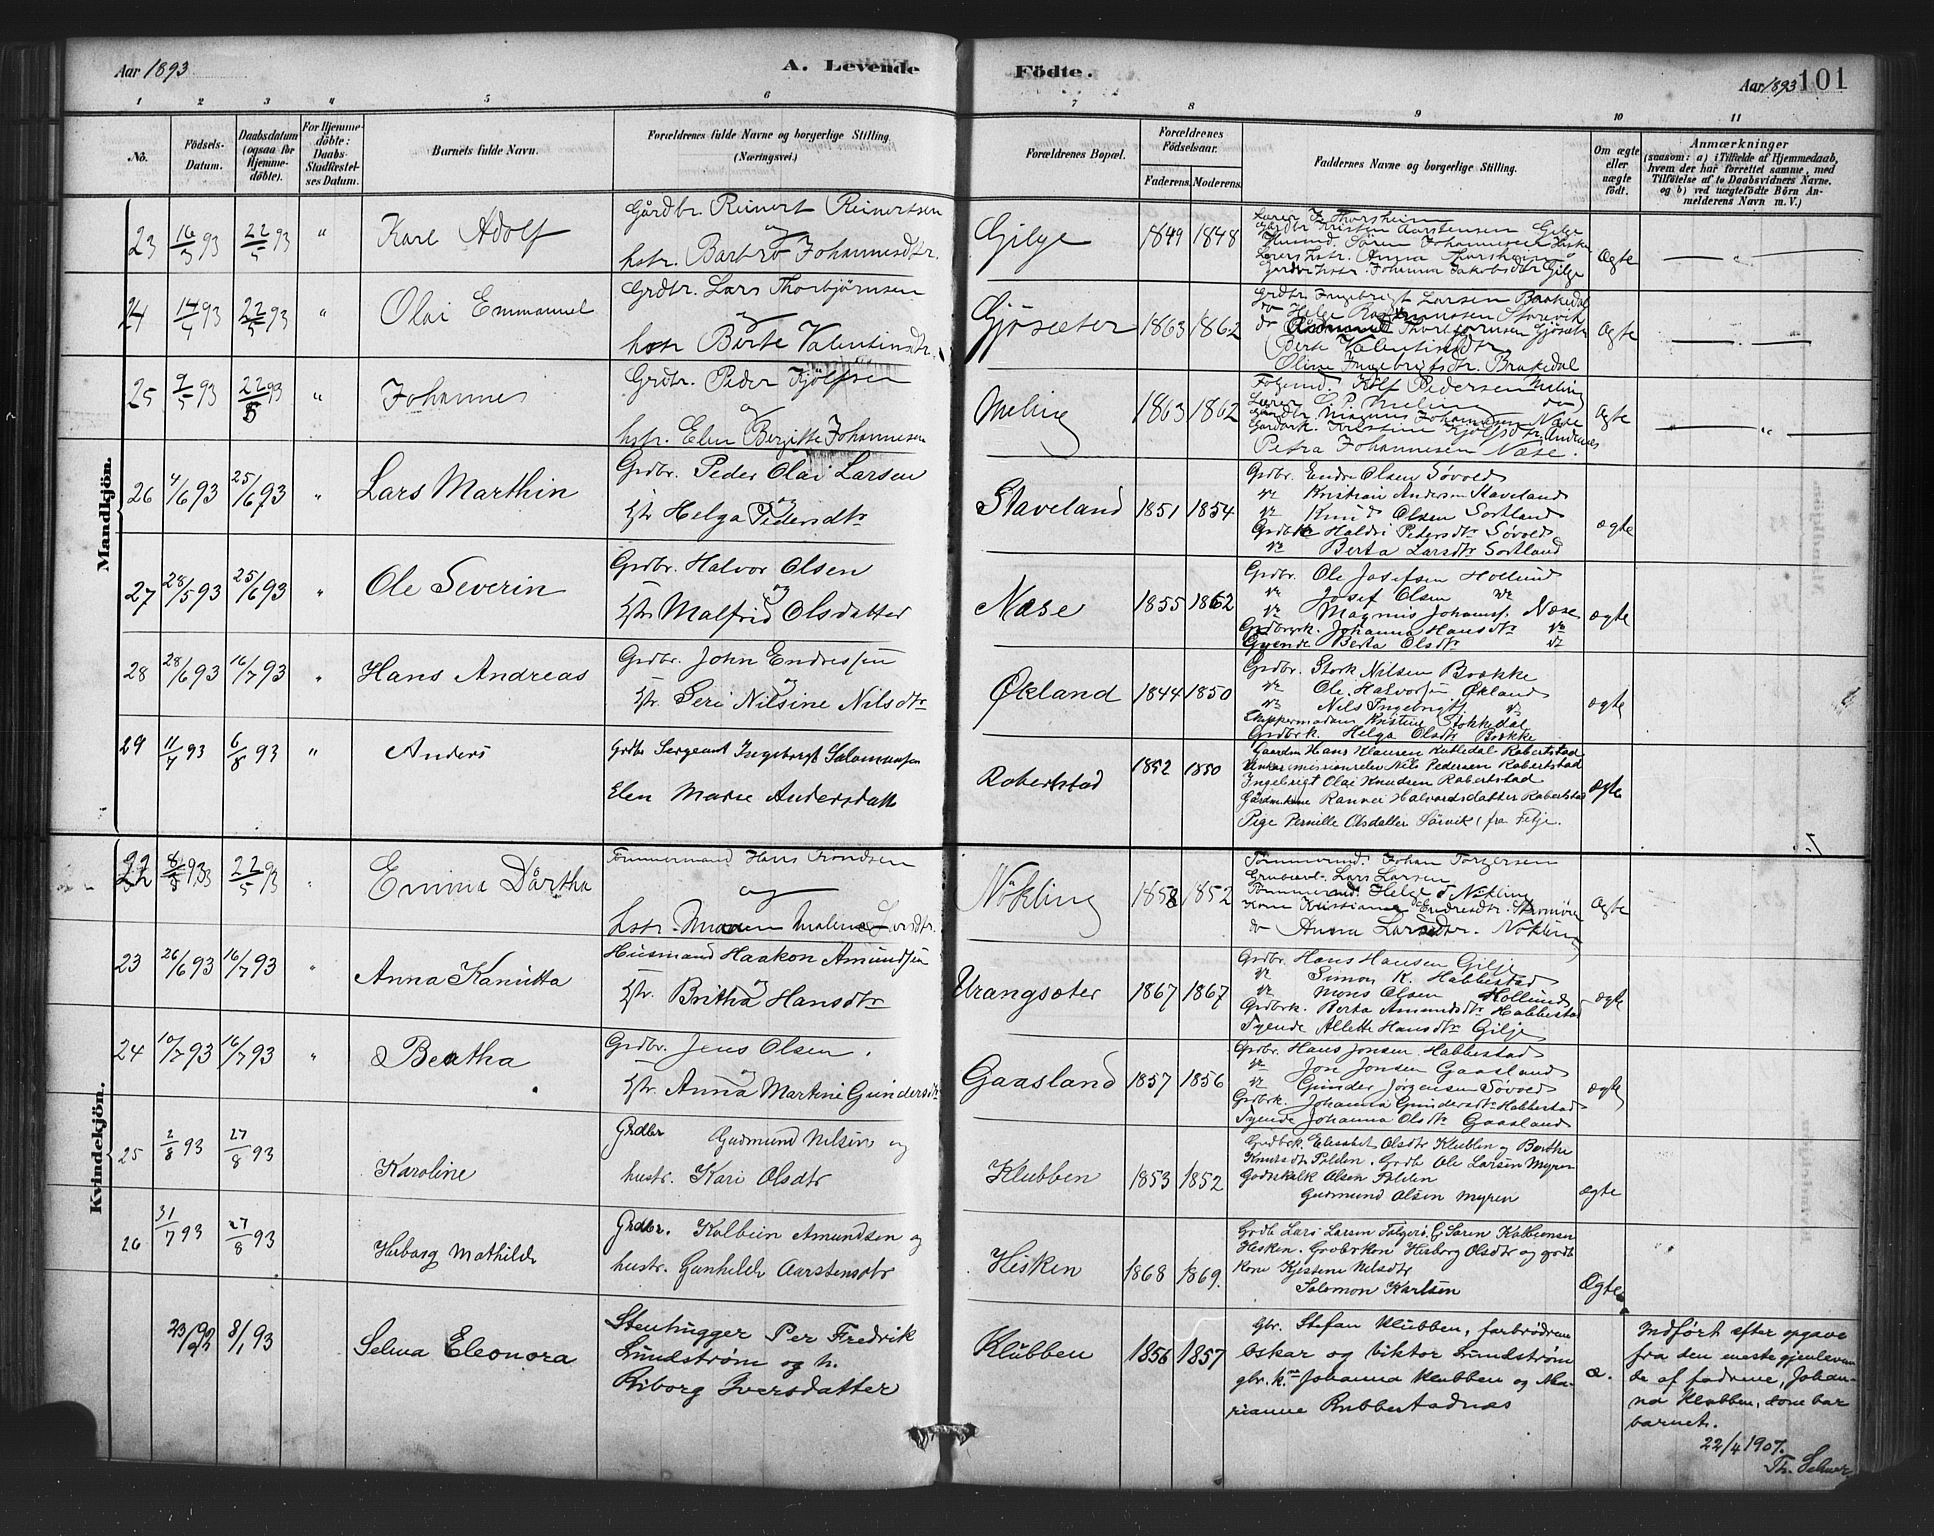 Aar 1893
A. Levende Födte.
Aar 1893
101
1 2 3 4 5 6 7 8 9 10 11
No.
Födsels-Datum.
Daabsdatum (ogsaa for Hjemmedöbte).
For Hjemmedöbte: Daabs-Stadfæstelses Datum.
Barnets fulde Navn.
Forældrenes fulde Navne og borgerlige Stilling.
(Næringsvei.)
Forældrenes Bopæl.
Forældrenes Födselsaar.
Faderens. Moderens.
Faddernes Navne og borgerlige Stilling.
Om ægte eller uægte födt.
Anmærkninger
(saasom: a) i Tilfælde af Hjemmedaab, hvem der har forrettet samme, med Tilföielse af to Daabsvidners Navne. og b) ved uægtefödte Börn Anmelderens Navn m. V.)
Mandkjön.
23 16/3 93 22/5 93 " Karl Adolf
Gårdbr Reinert Reinertsen
og
hstr. Barbro Johannesdtr.
Gilje 1849 1848
Lærer J. Thorsheim
Gårdbr Kristen Aarstensen Gilje
Husmd. Sören Johannesen Hisken
Lærers hstr. Anna Thorsheim
Gårdbr hstr. Johanna Jakobsdtr Gilje
Ægte
24 14/4 93 22/5 93 " Olai Emmanuel
Grdbr. Lars Thorbjörnsen
og
hstr Berte Valentinsdtr.
Gjösæter 1863 1862
Grdbr Ingebrigt Larsen Brakedal
do Helge Rasmussen Storevik
do Thorbjörnsen Gjösæter
Berte Valentinsdtr
Oline Ingebrigtsdtr. Brakedal
Ægte
25 9/5 93 22/5 93 " Johannes
Grdbr. Peder Kjölfsen
og
hstr. Elen Bergitte Johannesen
Meling 1863 1862
Folgemd. Kölf Pedersen Meling
Lærer C. P. Meling do
Gårdbr Magnus Johannesen Næse
Gårdbrk. Kristine Kjölfsdtr Andenæs
Petra Johannesen Næse.
Ægte
26 4/6 93 25/6 93 " Lars Marthin
Grdbr. Peder Olai Larsen
og
Hstr Helga Pedersdtr
Staveland 1851 1854
Grdbr. Endre Olsen Søvold
do Kristian Andersen Staveland
do Knud Olsen Sortland
Grdbrk Haldri Pedersdtr Søvold
do Berta Larsdtr Sortland
ægte
27 28/5 93 25/6 93 " Ole Severin
Grdbr. Halvor Olsen
og
Hstr Malfrid Olsdatter
Næse 1855 1862
Grdbr. Ole Josefsen Hollund
do Josef Olsen do
do Magnus Johannes. Næse
Grdbrk. Johanna Hansdtr do
Tyende Berta Olsdtr do
ægte
28 28/6 93 16/7 93 " Hans Andreas
Grdbr. John Endressen
og
Hstr. Seri Nilsine Nilsdtr
Økland 1844 1850
Grdbr. Stork Nilsen Bække
do Ole Halvorsen Økland
do Nils Ingebrigts. do
Skippermadam Kristine Stokkedal
Grdbrk. Helga Olsdtr Bække
ægte
29 11/7 93 6/8 93 " Anders
Grdbr Sergeant Ingebrigt Salomonsen
Elen Marie Andersdatt
Robertstad 1852 1850
Gaardm Hans Klausen Kutledal Robertstad
missionselev Nils Pedersen Robertstad
Ingebrigt Olai Knudsen Robertstad
Gårdmkone Rannei Halvardsdatter Robertstad
Pige Pernille Olsdatter Sørvik, fra Fitje.
ægte
Kvindekjön.
22 8/3 93 22/5 93 Emma Dårtha
Tømmermand Hans Trondsen
og
hstr. Maren Malene
Nökling 1852 1852
Tømmermd. Johan Torgersen
Lars Larsen
Tømmermd. Helge Nökling
Kone Kristiane Endresdtr.
do Anna Larsdtr. Nökling
Ægte
23 26/6 93 16/7 93 " Anna Kanutta
Husmand Haakon Amundsen
og
Hstr. Britha Hansdtr
Vrangsæter 1867 1867
Grdbr. Hans Hansen Gilje
do Simon K. Habbestad
do Mons Olsen Hollund
Grdbrk. Berta Amundsdtr Habbestad
Tyende Allette Hansdtr Gilje
ægte
24 10/7 93 16/7 93 " Beatha
Grdbr. Jens Olsen.
og
Hstr. Anna Martine Gundersdtr
Gaasland 1857 1856
Grdbr. Hans Jonsen Habbestad
do Jon Jonsen Gaasland
do Gunder Jørgensen Søvold
Grdbrk. Johanna Gundersdtr Habbestad
Tyende Johanna Olsdtr Gaasland
ægte
25 2/8 93 27/8 93 Karoline
Grdbr Gudmund Nilsen og
hustr. Kari Olsdtr
Klubben 1853 1852
Grdbrk Elisabet Olsdtr Klubben og Berthe
Knutsdtr Folden. Grdb Ole Larsen Myren
Olsen Folden
Gudmund Olsen Myren
ægte
26 31/7 93 27/8 93 Herborg Mathilde
Grdbr. Kolbein Amundsen og
hustr. Gunhilde Aarstensdtr
Hisken 1868 1869.
Grdb Lars Larsen Folgerö. G Sören Kolbeinsen
Hisken. Grdbrkon Herborg Olsdtr og grdb
kone Kjistine Nilsdtr
Salomon Karlsen
Ægte
23/2 92 8/1 93 Selma Eleonora
Stenhugger Per Fredrik
Lundström og h.
Riborg Iversdatter
Klubben 1856 1857
Gbr. Stefan Klubben, farbrødrene
Oskar og Viktor Lundström
gbr. kone Johanna Klubben og Marianne
Rubbestadnæs
æ.
Indført efter opgave
fra den eneste gjenlevende
af fadrene, Johanna
Klubben, som bar
barnet.
22/4 1907.
Th. Selmer